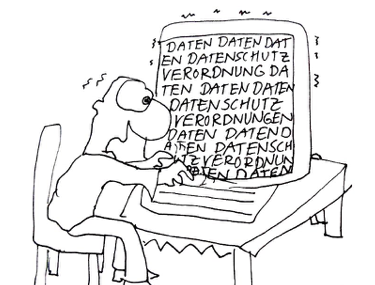 DATEN DATEN DAT
EN DATENSCHUTZ
VERORDNUNG DA
TEN DATEN DATEN
DATENSCHUTZ
VERORDNUNGEN
DATEN DATEN D
ATEN DATENSCH
UTZVERORDNUN
DATEN DATEN